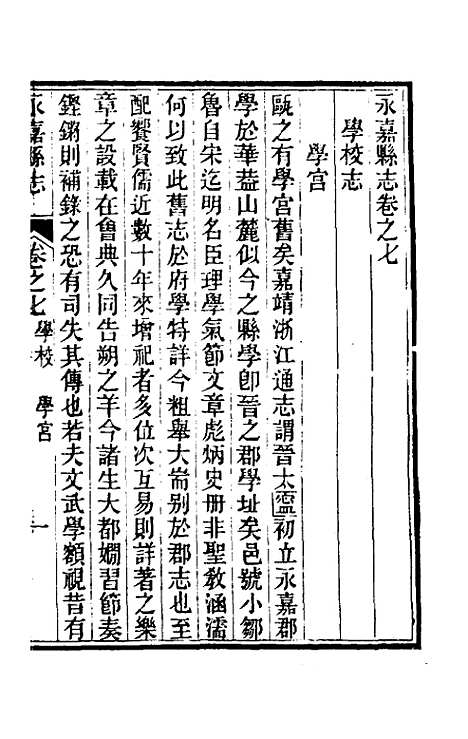 永嘉縣志卷之七
學校志
學宮
甌之有學宮舊矣嘉靖浙江通志謂晉太寍初立永嘉郡
學於華葢山麓似今之縣學卽晉之郡學址矣邑號小鄒
魯自宋迄明名臣理學氣節文章彪炳史册非聖敎涵濡
何以致此舊志於府學特詳今粗舉大耑别於郡志也至
配饗賢儒近數十年來增祀者多位次互易則詳著之樂
章之設載在會典久同告朔之羊今諸生大都嫺習節奏
鏗鏘則補錄之恐有司失其傳也若夫文武學額視昔有
永嘉縣志 卷之七 學校 學宮 一